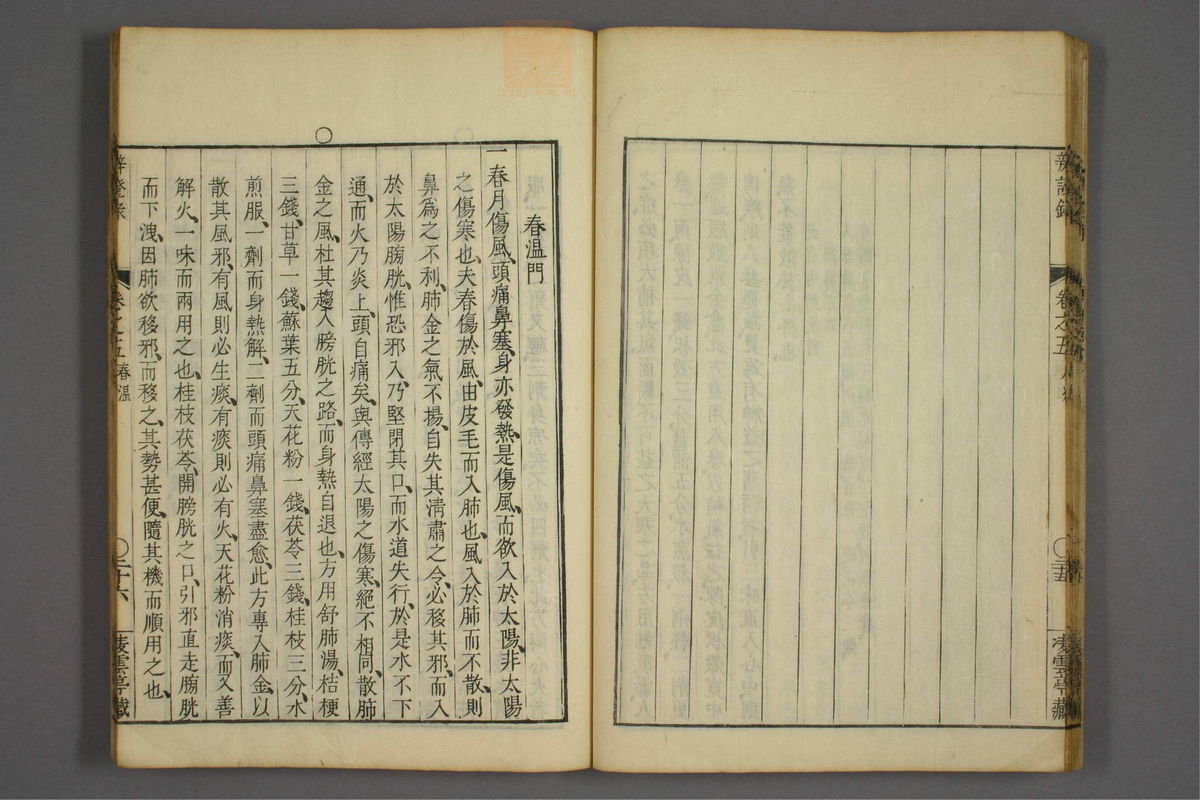 辨證錄
卷之五
凌雲亭藏
春溫門
一春月傷風、頭痛鼻塞、身亦發熱、是傷風而欲入於太陽、非太陽
之傷寒也、夫春傷於風、由皮毛而入肺也、風入於肺而不散、則
鼻爲之不利、肺金之氣不揚、自失其淸肅之令、必移其邪、而入
於太陽膀胱、惟恐邪入、乃堅閉其口、而水道失行、於是水不下
通、而火乃炎上、頭自痛矣、與傳經太陽之傷寒、絕不相同、散肺
金之風、杜其趨入膀胱之路、而身熱自退也、方用舒肺湯、桔梗
三錢、甘草一錢、蘇葉五分、天花粉一錢、茯苓三錢、桂枝三分、水
煎服、一劑而身熱解、二劑而頭痛鼻塞盡愈、此方專入肺金、以
散其風邪、有風則必生痰、有痰則必有火、天花粉消痰、而又善
解火、一味而兩用之也、桂枝茯苓、開膀胱之口、引邪直走膀胱
而下洩、因肺欲移邪、而移之、其勢甚便、隨其機而順用之也、
辨證錄
卷之五 春溫
○三十六
凌雲亭藏